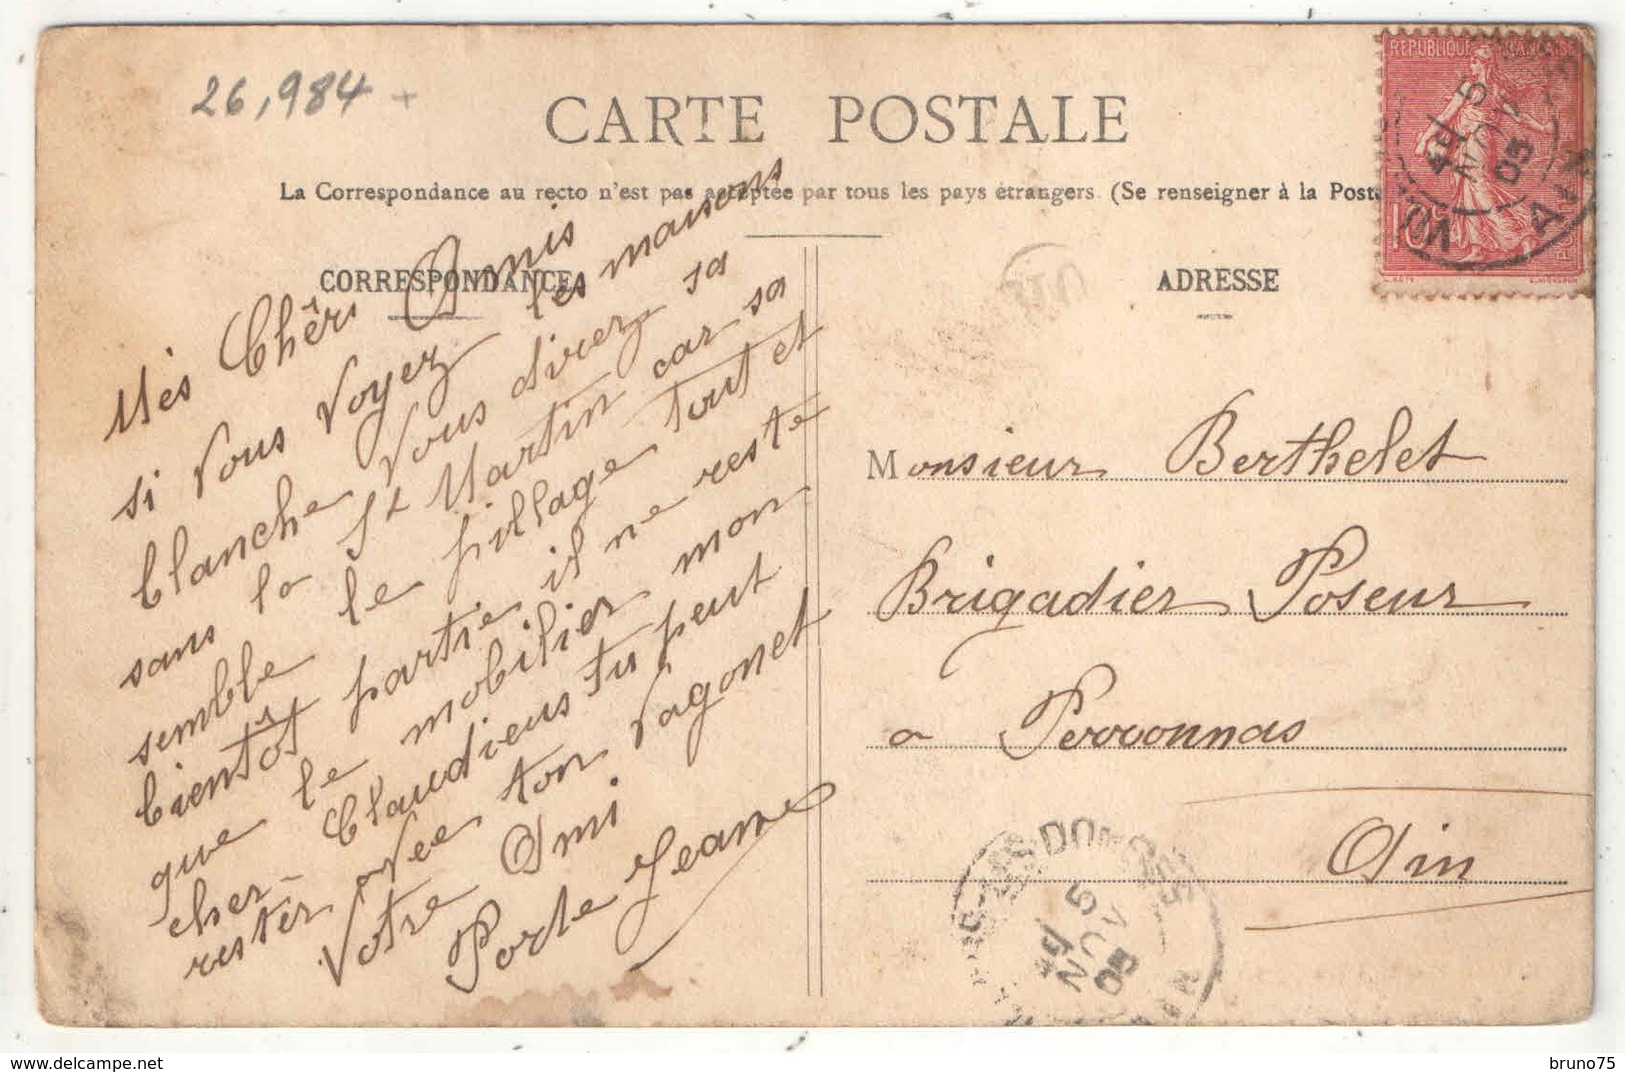 26,984 +
CARTE POSTALE
La Correspondance au recto n'est pas acceptée par tous les pays étrangers (Se renseigner à la Poste
CORRESPONDANCE
ADRESSE
REPUBLIQUE FRANÇAISE
10
5
NOV
05
AIN
Mes Chêrs Amis
si Vous Voyez les maisons
blanche Vous direz sa
sans la St Martin car sa
semble le pillage tout et
bientôt partie il ne reste
que le mobilier mon
cher - Claudieus tu peut
rester avec ton Vagonet
Votre Ami
Porte Jeanne
Monsieur Berthelet
Brigadier Poseur
a Perronnas
Ain
DOMBES
5
NOV
05
AIN
www.delcampe.net
bruno75